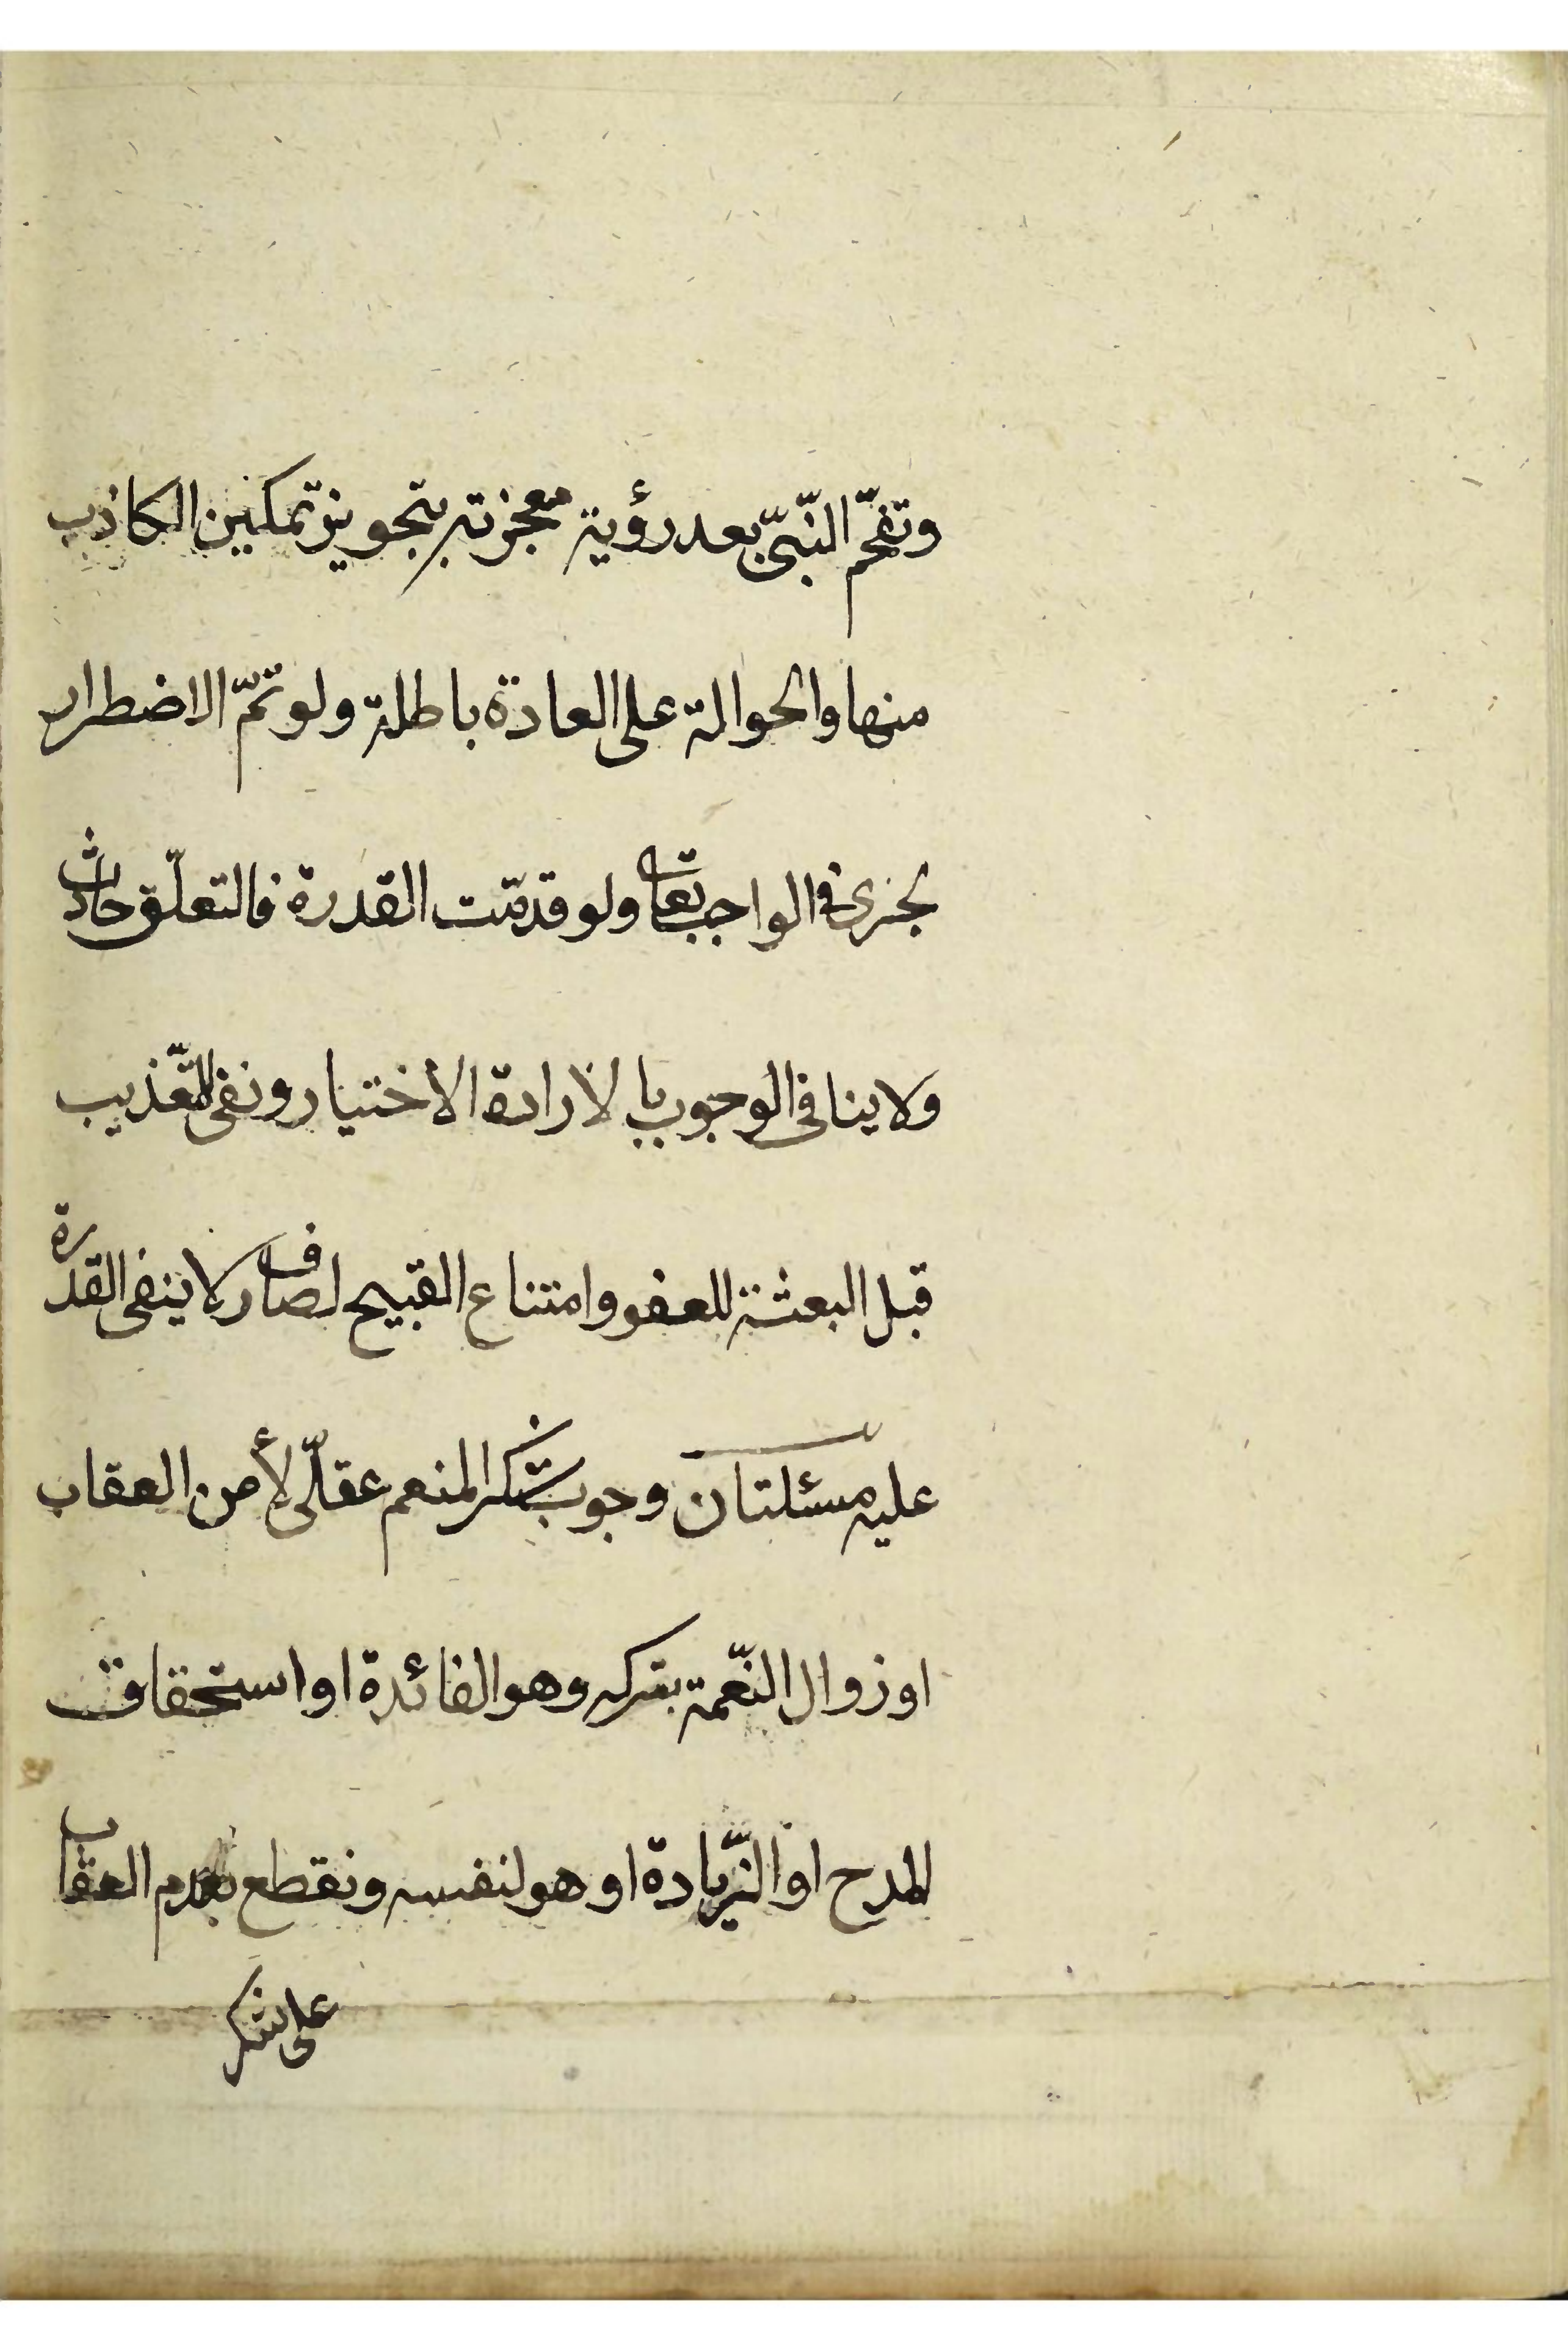 وتفحّم النّبيّ بعد رؤية معجزته بتجويز تمكين الكاذب
منها والحوالة على العادة باطلة ولو تمّ الاضطرار
لجرى في الواجب تعالى ولو قدمّت القدرة فالتعلّق حادث
ولا ينافي الوجوب بالارادة الاختيار ونفى التّعذيب
قبل البعثة للعفو وامتناع القبيح لصارف لا ينفى القدرة
عليه مسئلتان وجوب شكر المنعم عقلّى لأمن العقاب
او زوال النّعمة بتركه وهو الفائدة او استحقاق
المدح او الزّيادة او هو لنفسه ونقطع بعدم العقاب
على شكر